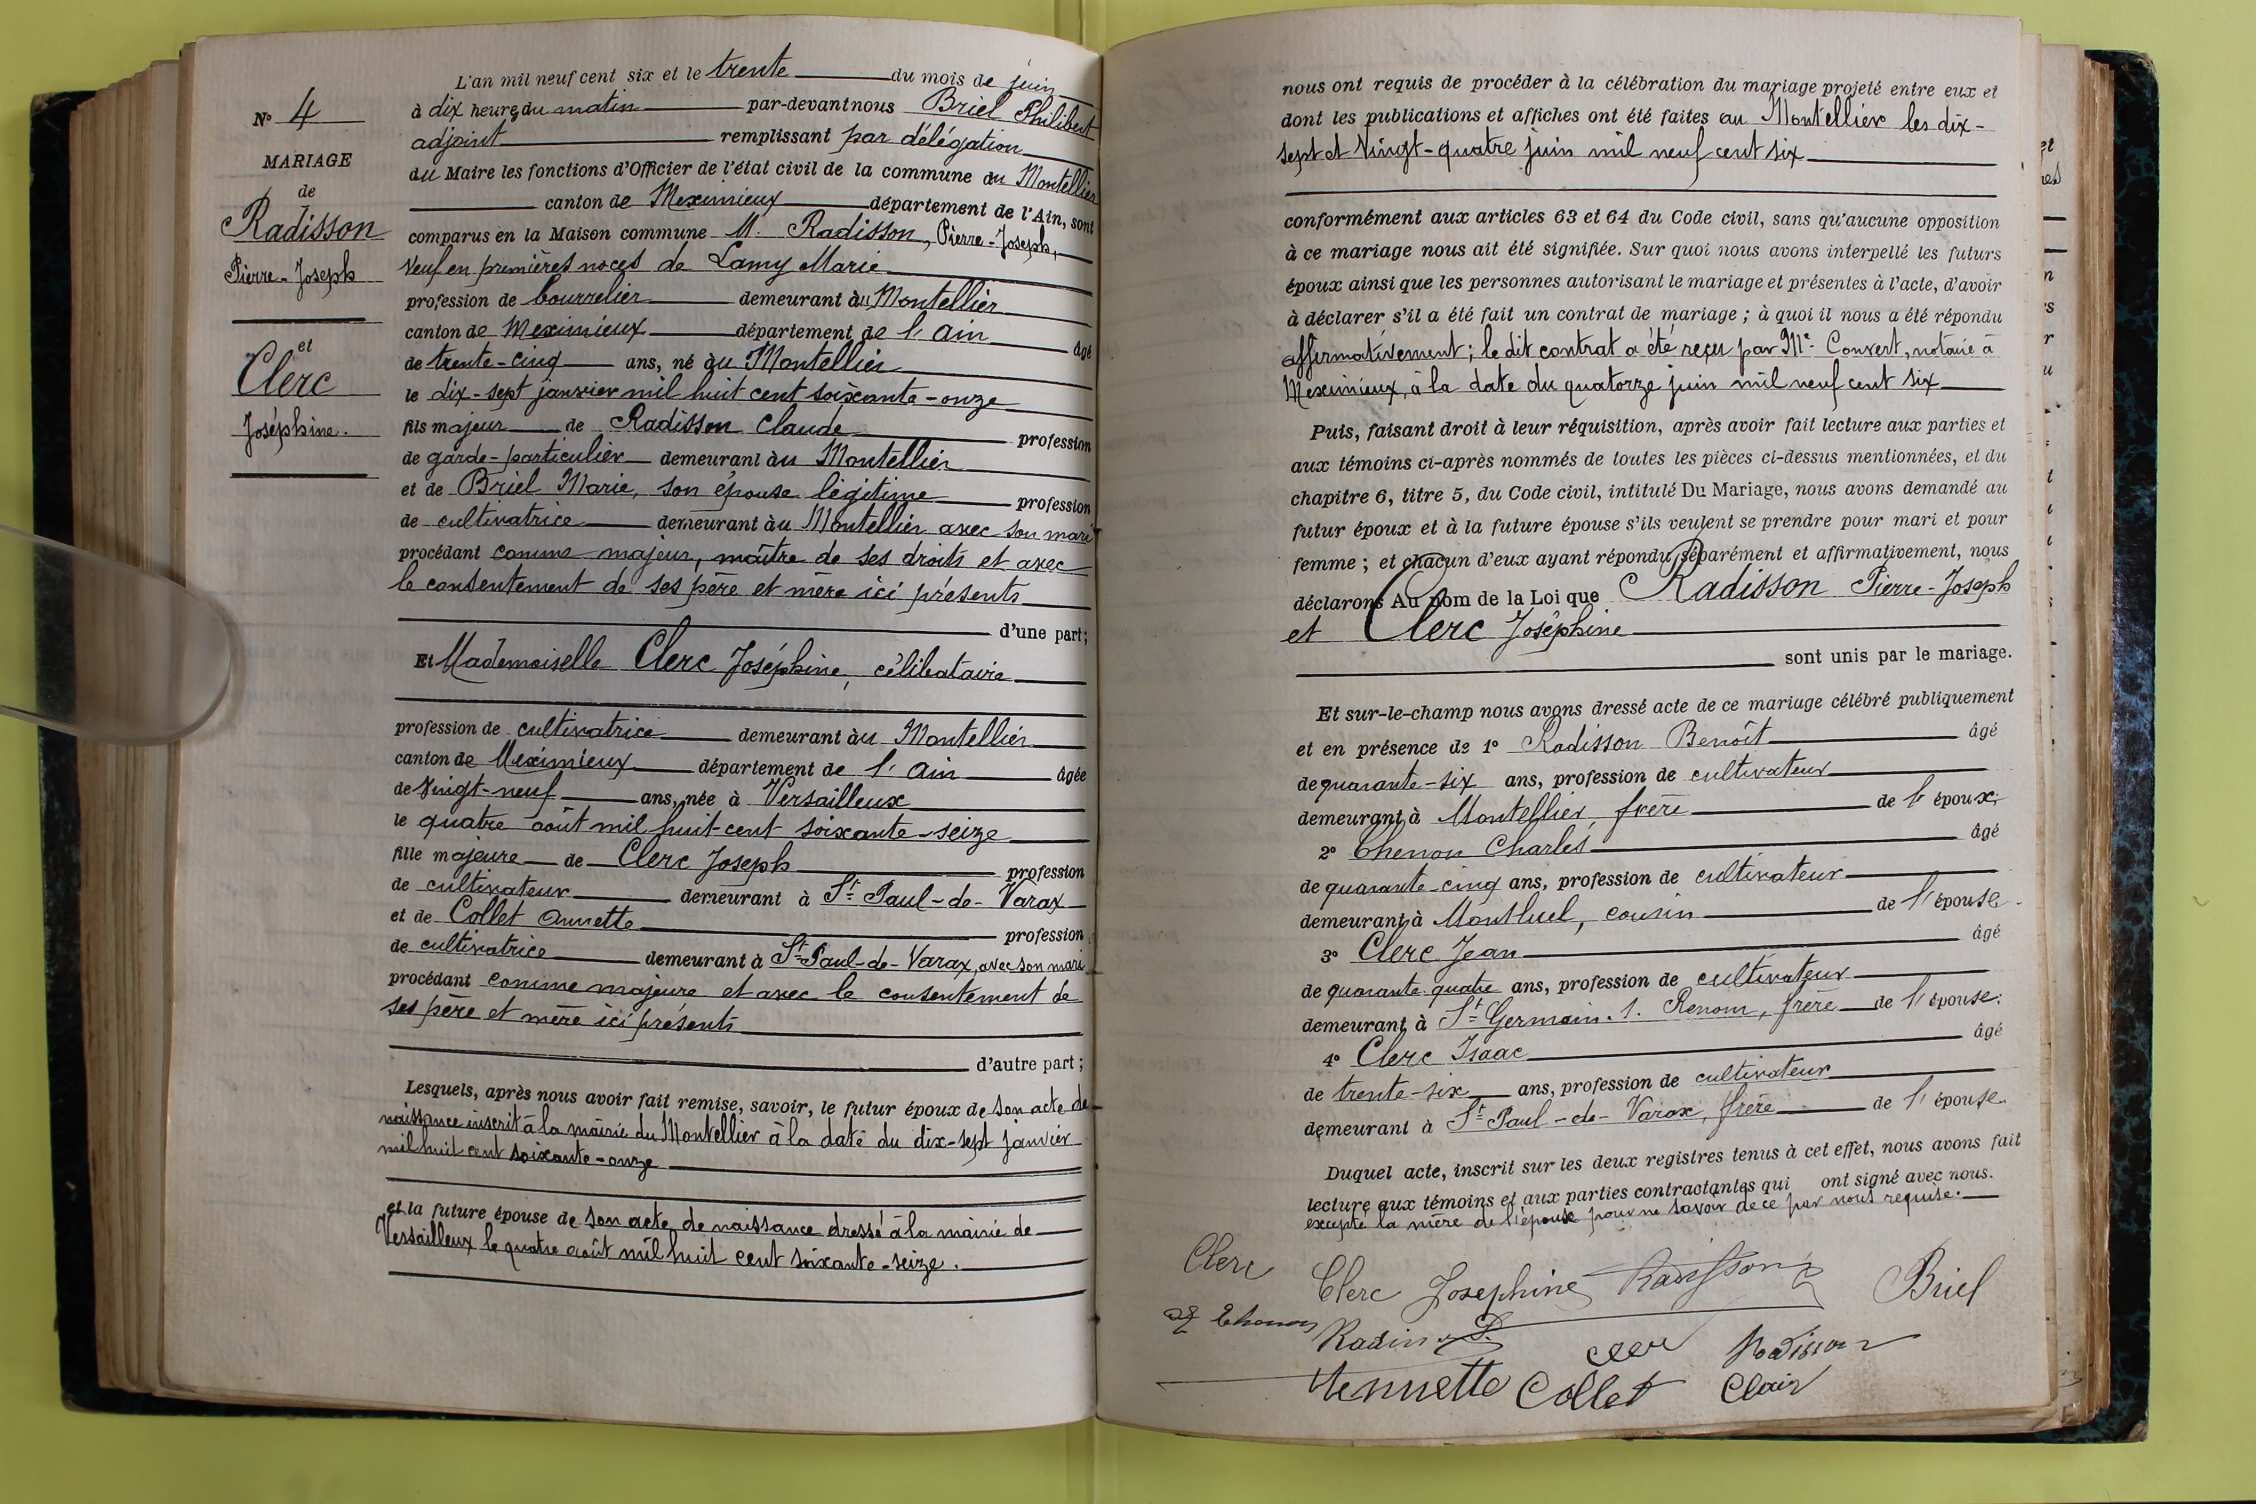 N° 4
MARIAGE
de
Radisson
Pierre-Joseph
et
Clerc
Joséphine.
L'an mil neuf cent six et le trente du mois de juin
à dix heures du matin par-devant nous Briel Philibert
adjoint remplissant par délégation
du Maire les fonctions d'Officier de l'état civil de la commune du Montellier
canton de Meximieux département de l'Ain, sont
comparus en la Maison commune M. Radisson, Pierre-Joseph,
veuf en premières noces de Lamy Marie
profession de bourrelier demeurant au Montellier
canton de Meximieux département de l'Ain âgé
de trente-cinq ans, né au Montellier
le dix-sept janvier mil huit cent soixante-onze
fils majeur de Radisson Claude profession
de garde-particulier demeurant au Montellier
et de Briel Marie, son épouse légitime profession
de cultivatrice demeurant au Montellier avec son mari
procédant comme majeur, maître de ses droits et avec
le consentement de ses père et mère ici présents
d'une part;
Et Mademoiselle Clerc Joséphine, célibataire
profession de cultivatrice demeurant au Montellier
canton de Meximieux département de l'Ain âgée
de vingt-neuf ans, née à Versailleux
le quatre août mil huit-cent soixante-seize
fille majeure de Clerc Joseph profession
de cultivateur demeurant à St Paul-de-Varax
et de Collet Annette profession
de cultivatrice demeurant à St Paul-de-Varax, avec son mari
procédant comme majeure et avec le consentement de
ses père et mère ici présents
d'autre part;
Lesquels, après nous avoir fait remise, savoir, le futur époux de son acte de
naissance inscrit à la mairie du Montellier à la date du dix-sept janvier
mil huit cent soixante-onze
et la future épouse de son acte de naissance dressé à la mairie de
Versailleux le quatre août mil huit cent soixante-seize.
nous ont requis de procéder à la célébration du mariage projeté entre eux et
dont les publications et affiches ont été faites au Montellier les dix-
sept et vingt-quatre juin mil neuf cent six
conformément aux articles 63 et 64 du Code civil, sans qu'aucune opposition
à ce mariage nous ait été signifiée. Sur quoi nous avons interpellé les futurs
époux ainsi que les personnes autorisant le mariage et présentes à l'acte, d'avoir
à déclarer s'il a été fait un contrat de mariage; à quoi il nous a été répondu
affirmativement; le dit contrat a été reçu par Me Convert, notaire à
Meximieux, à la date du quatorze juin mil neuf cent six
Puis, faisant droit à leur réquisition, après avoir fait lecture aux parties et
aux témoins ci-après nommés de toutes les pièces ci-dessus mentionnées, et du
chapitre 6, titre 5, du Code civil, intitulé Du Mariage, nous avons demandé au
futur époux et à la future épouse s'ils veulent se prendre pour mari et pour
femme; et chacun d'eux ayant répondu séparément et affirmativement, nous
déclarons Au nom de la Loi que Radisson Pierre-Joseph
et Clerc Joséphine
sont unis par le mariage.
Et sur-le-champ nous avons dressé acte de ce mariage célébré publiquement
et en présence de 1° Radisson Benoît âgé
de quarante-six ans, profession de cultivateur
demeurant à Montellier, frère de l'époux.
2° Chenon Charles âgé
de quarante-cinq ans, profession de cultivateur
demeurant à Montluel, cousin de l'épouse.
3° Clerc Jean âgé
de quarante-quatre ans, profession de cultivateur
demeurant à St Germain. s. Renom, frère de l'épouse.
4° Clerc Isaac âgé
de trente-six ans, profession de cultivateur
demeurant à St Paul-de-Varax, frère de l'épouse.
Duquel acte, inscrit sur les deux registres tenus à cet effet, nous avons fait
lecture aux témoins et aux parties contractantes qui ont signé avec nous.
excepté la mère de l'époux pour ne savoir de ce par nous requise.
Clerc Clerc Josephine Radisson Briel
Chenon
Radisson
Collet Clair